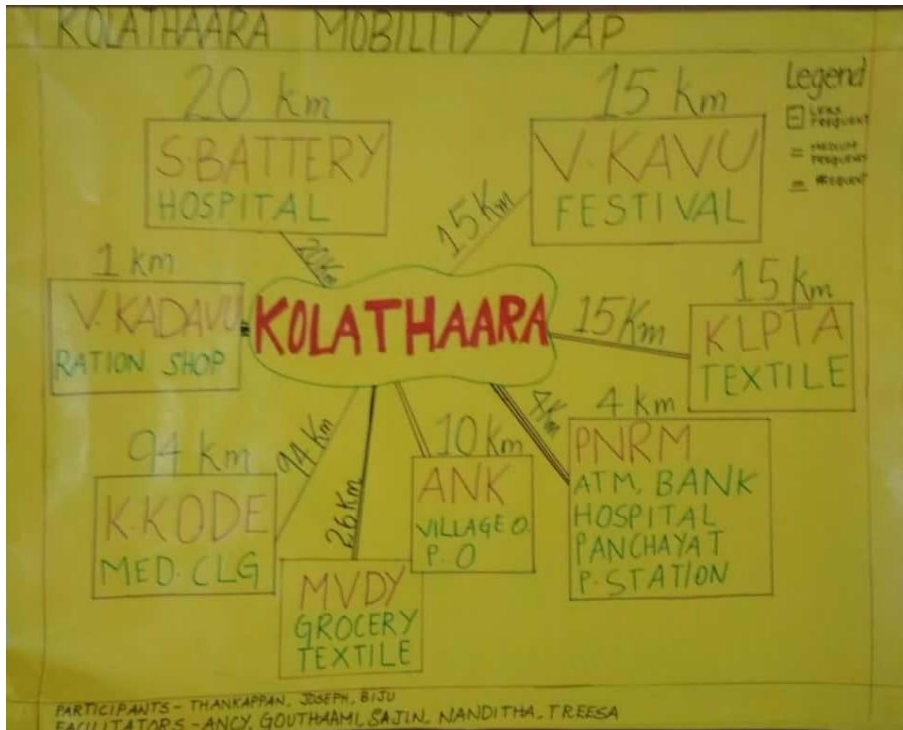 KOLATHAARA MOBILITY MAP
Legend
LESS FREQUENT
MEDIUM FREQUENT
FREQUENT
20 km
S.BATTERY
HOSPITAL
20Km
15 km
V.KAVU
FESTIVAL
15Km
1 km
V.KADAVU
RATION SHOP
KOLATHAARA
15 km
KLPTA
TEXTILE
15Km
94 km
K.KODE
MED.CLG
94Km
MVDY
GROCERY
TEXTILE
26Km
10 km
ANK
VILLAGE O.
P.O
4 km
PNRM
ATM, BANK
HOSPITAL
PANCHAYAT
P.STATION
4Km
PARTICIPANTS - THANKAPPAN, JOSEPH, BIJU
FACILITATORS - ANCY, GOUTHAAMI, SAJIN, NANDITHA, TREESA